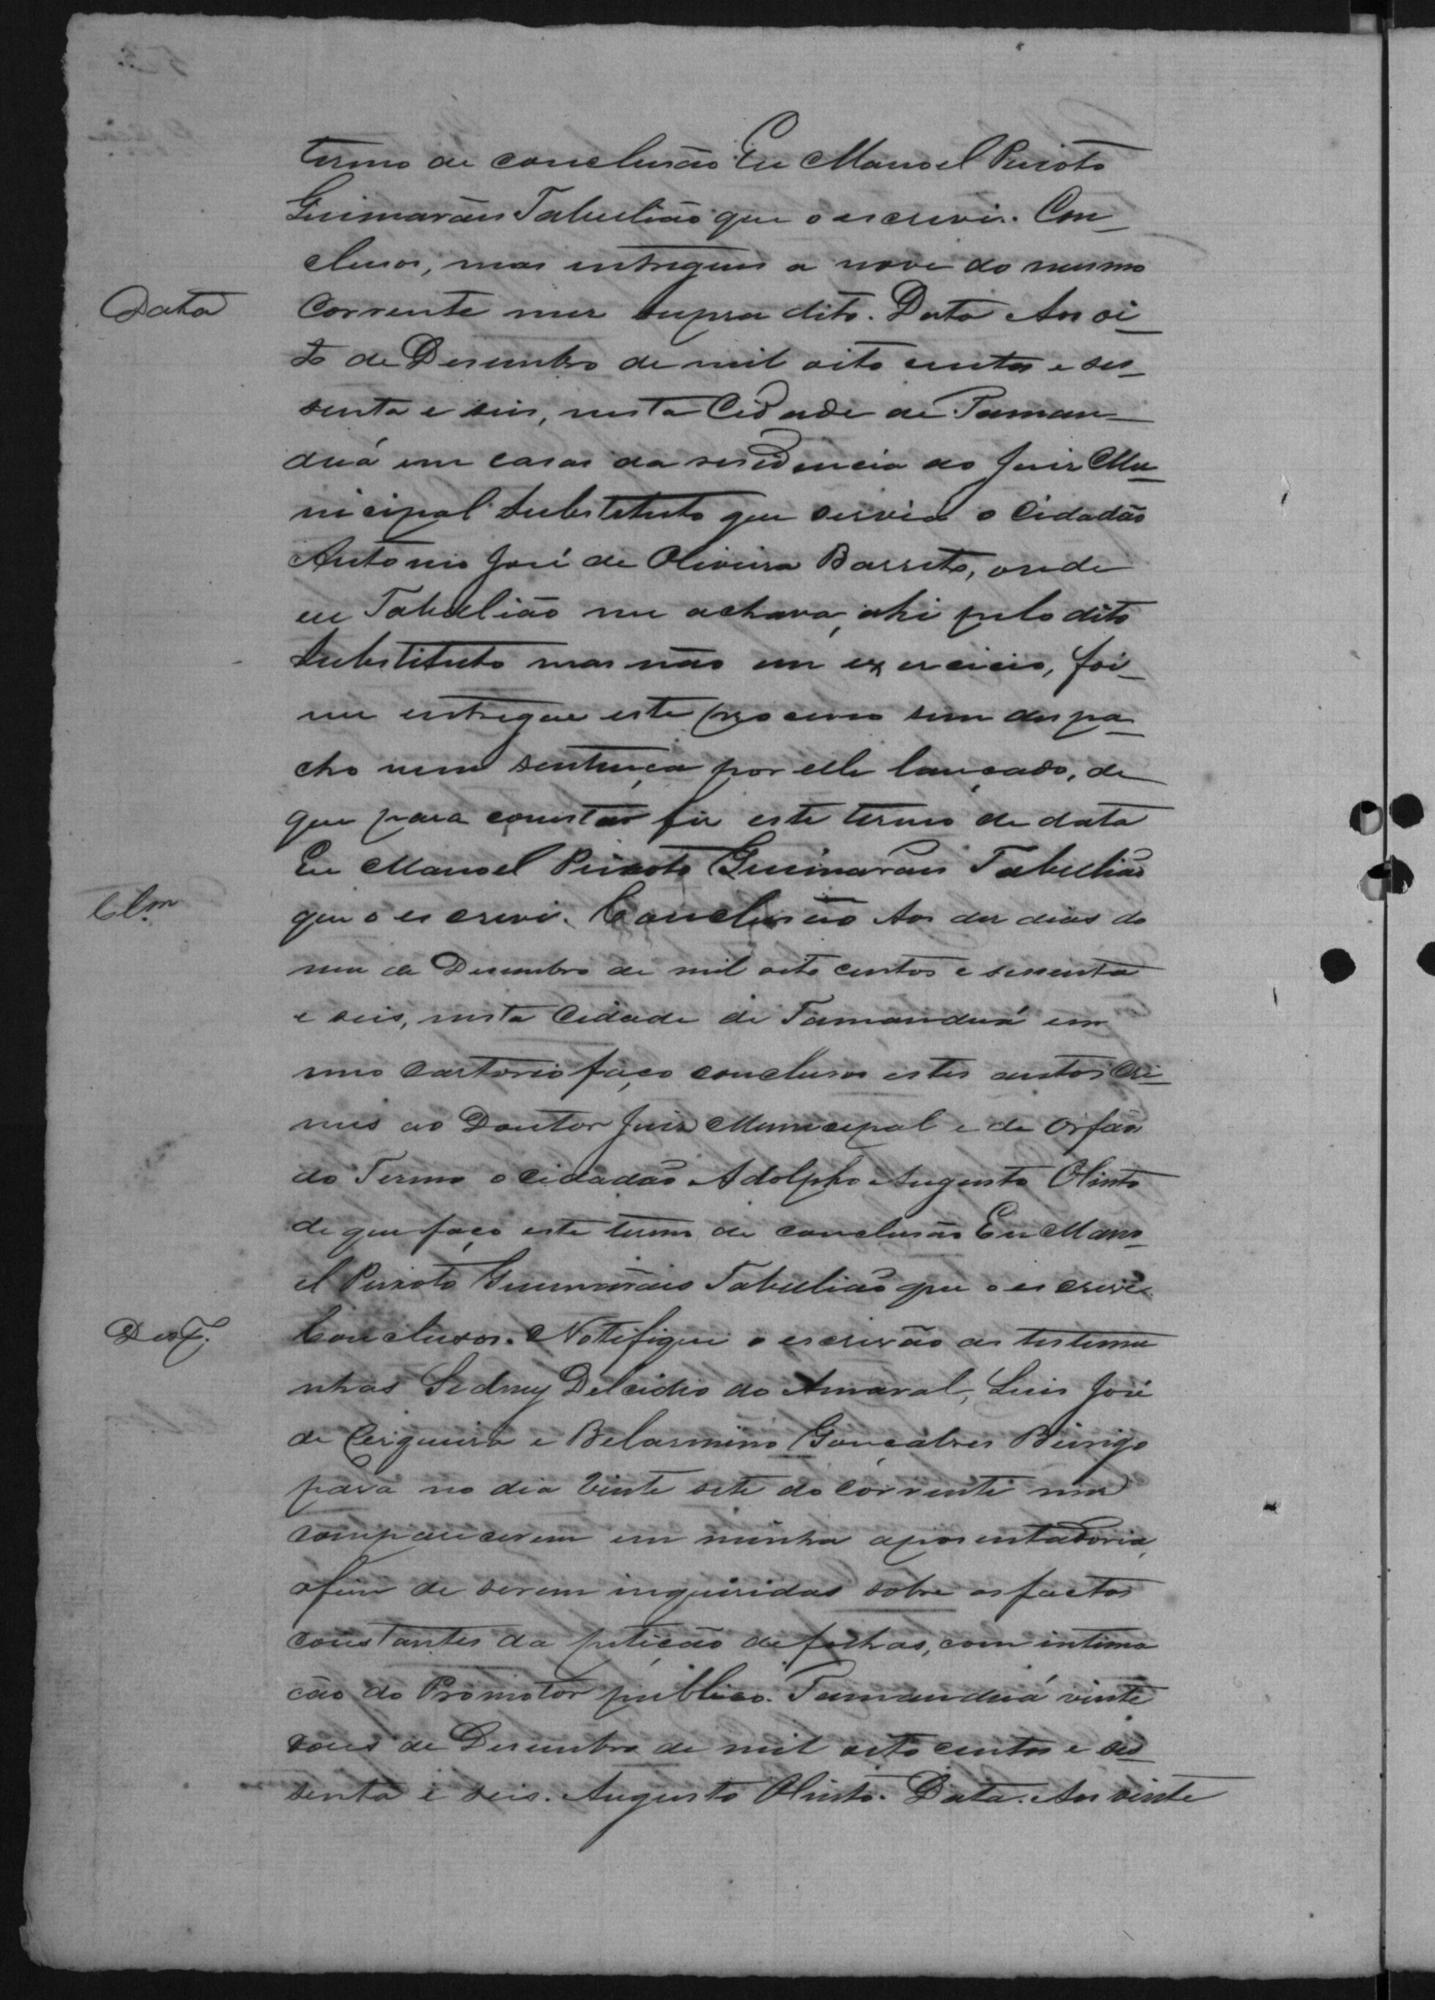 termo de conclusão Eu Manoel Peixoto
Guimarães Tabelião que o escrevi. Con_
clusos, mas entregues a nove do mesmo
Data
corrente mez supra dito. Data Aos oi_
to de Desembro de mil oito centos e ses_
senta e seis, nesta Cidade de Taman_
duá em casas da residencia do Juiz Mu_
nicipal Substituto que servia o Cidadão
Antonio José de Oliveira Barreto, onde
eu Tabelião me achava, ahi pelo dito
Substituto mas não em exercicio, foi_
me entregue este processo sem despa_
cho nem sentença por elle lançado, de
que para constar fiz este termo de data
Eu Manoel Peixoto Guimarães Tabelião
Clm
que o escrevi. Conclusão Aos dez dias do
mez de Desembro de mil oito centos e sessenta
e seis, nesta Cidade de Tamanduá em
meo Cartorio faço conclusos estes autos Cri_
mes ao Doutor Juiz Municipal e de Orfãos
do Termo o Cidadão Adolpho Augusto Olinto
de que faço este termo de conclusão Eu Mano_
el Peixoto Guimarães Tabelião que o escrevi
Conclusos. Notifique o escrivão as testemu
nhas Sedney Delcidio do Amaral, Luis José
de Cerqueira e Belarmino Gonçalves
para no dia vinte sete do corrente mez
comparecerem em minha aposentadoria,
afim de serem inqueridas sobre os factos
constantes da petição de folhas, com intima
ção do Promotor publico. Tamanduá vinte
de Desembro de mil oito centos e ses_
senta e seis. Augusto Olinto. Data. Aos vinte